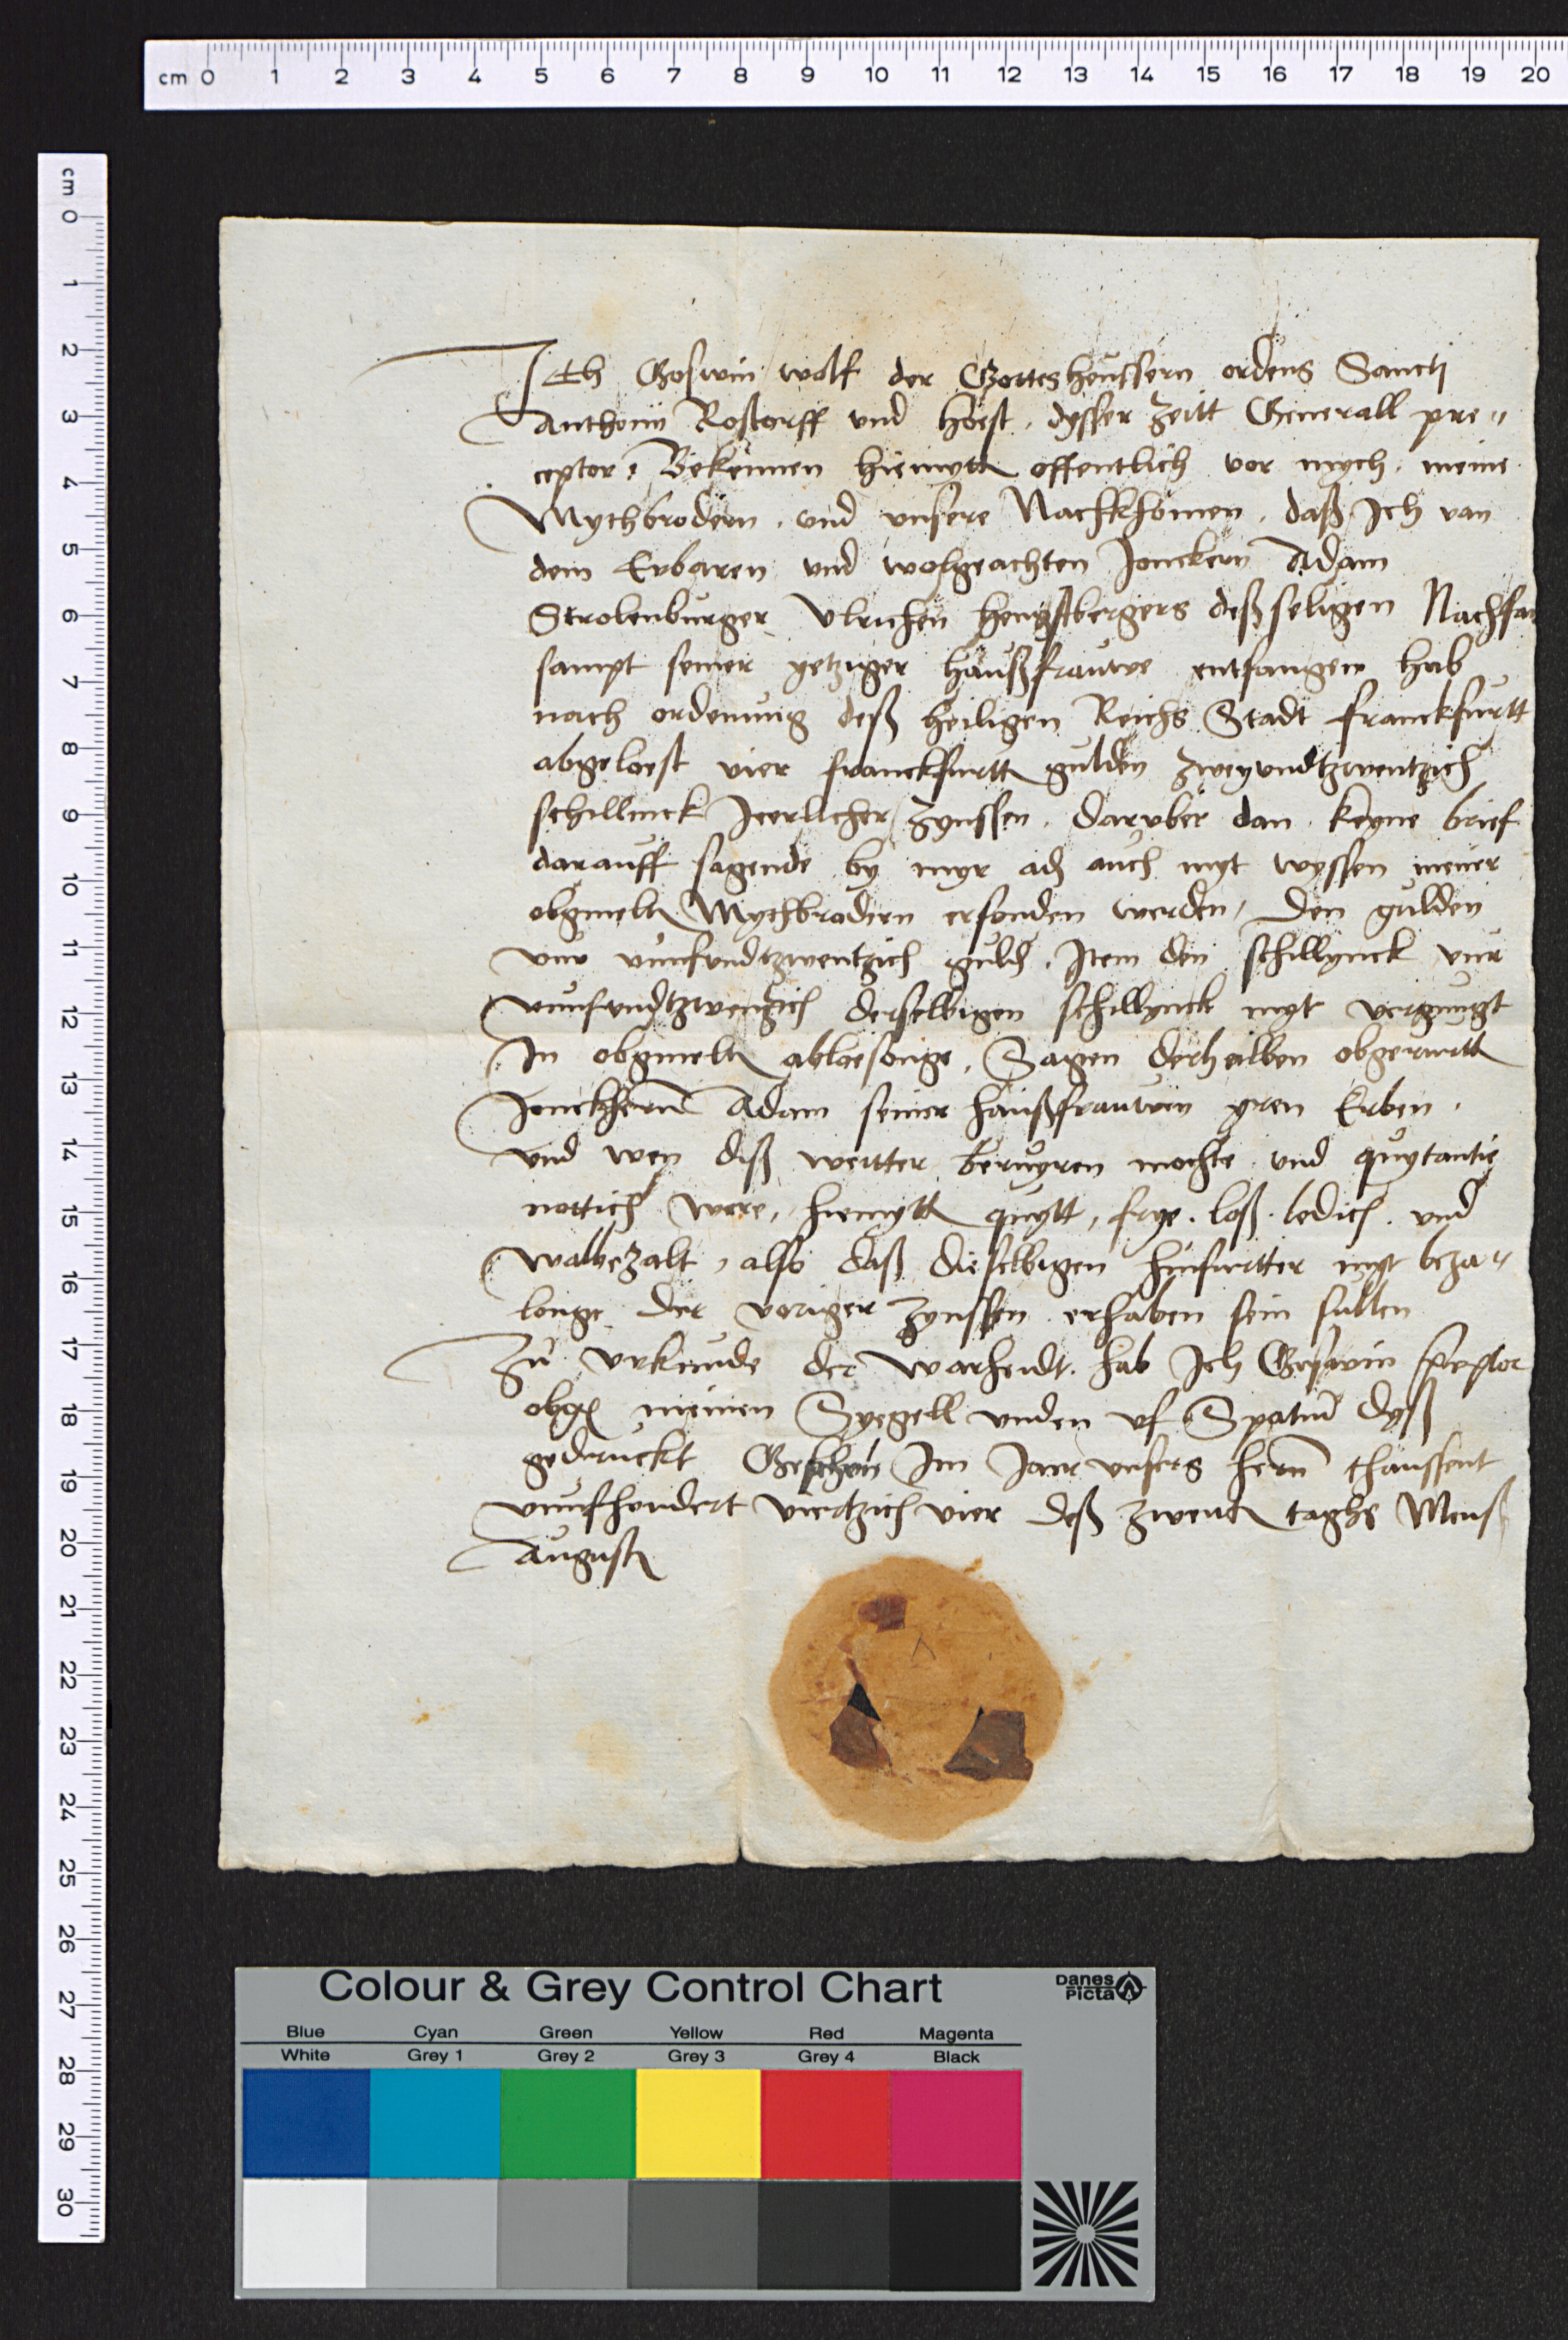 cm 0 1 2 3 4 5 6 7 8 9 10 11 12 13 14 15 16 17 18 19 20
cm 0 1 2 3 4 5 6 7 8 9 10 11 12 13 14 15 16 17 18 19 20 21 22 23 24 25 26 27 28 29 30
Ich Goswin wolf der Gottesheussern ordens Sancti
Anthonii Rostorff und hoest, dysser zeitt Generall pre"
ceptor, Bekennen hiemytt offentlich vor mych, meine
Mythbrodern, und unsere Nachkhomen, daß Ich van
dem Erbaren und wolgeachten Jonckern Adam
Strolenburger Ulrichen hengstbergers deß seligen Nachfar
sampt seiner yetziger haußfrauwe entfangen hab
nach ordenung deß heiligen Reichs Stadt franckfurtt
abgeloest vier franckfurtt gulden zweyundtzwentzich
schillinck Jerlicher zynssen, daruber dan keyne brief
darauff sagende by myr ader auch myt wyssen meiner
obgmelt Mythbrodern erfonden werden, Den gulden
vur vunfundtzwentzich guld, Item den schillynck vur
vunfundtzwenzich derselbigen schillynck myt vergnugt
In obgmelt abloesonge, Sagen derhalben obgerurtt
Jonckhern Adam seiner haußfrauwen yren Erben,
und wen diß weitter beruyren mochte und quytantie
nottich were, hiemytt quytt, frye, loß, ledich und
walbezalt, also daß dieselbigen hinfurtter myt beza"
longe der voriger zynssen erhaben sein sullen
Zu urkunde der warheidt hab Ich Goswin preceptor
obg meinen Syegell unden uf Spatium dyß
gedruckt Geschehen Im Jaer unsers hern thaussent
vunfhondert viertzich vier deß zweiten taghs Mens
Augusti
Colour & Grey Control Chart
Danes Picta
Blue Cyan Green Yellow Red Magenta
White Grey 1 Grey 2 Grey 3 Grey 4 Black